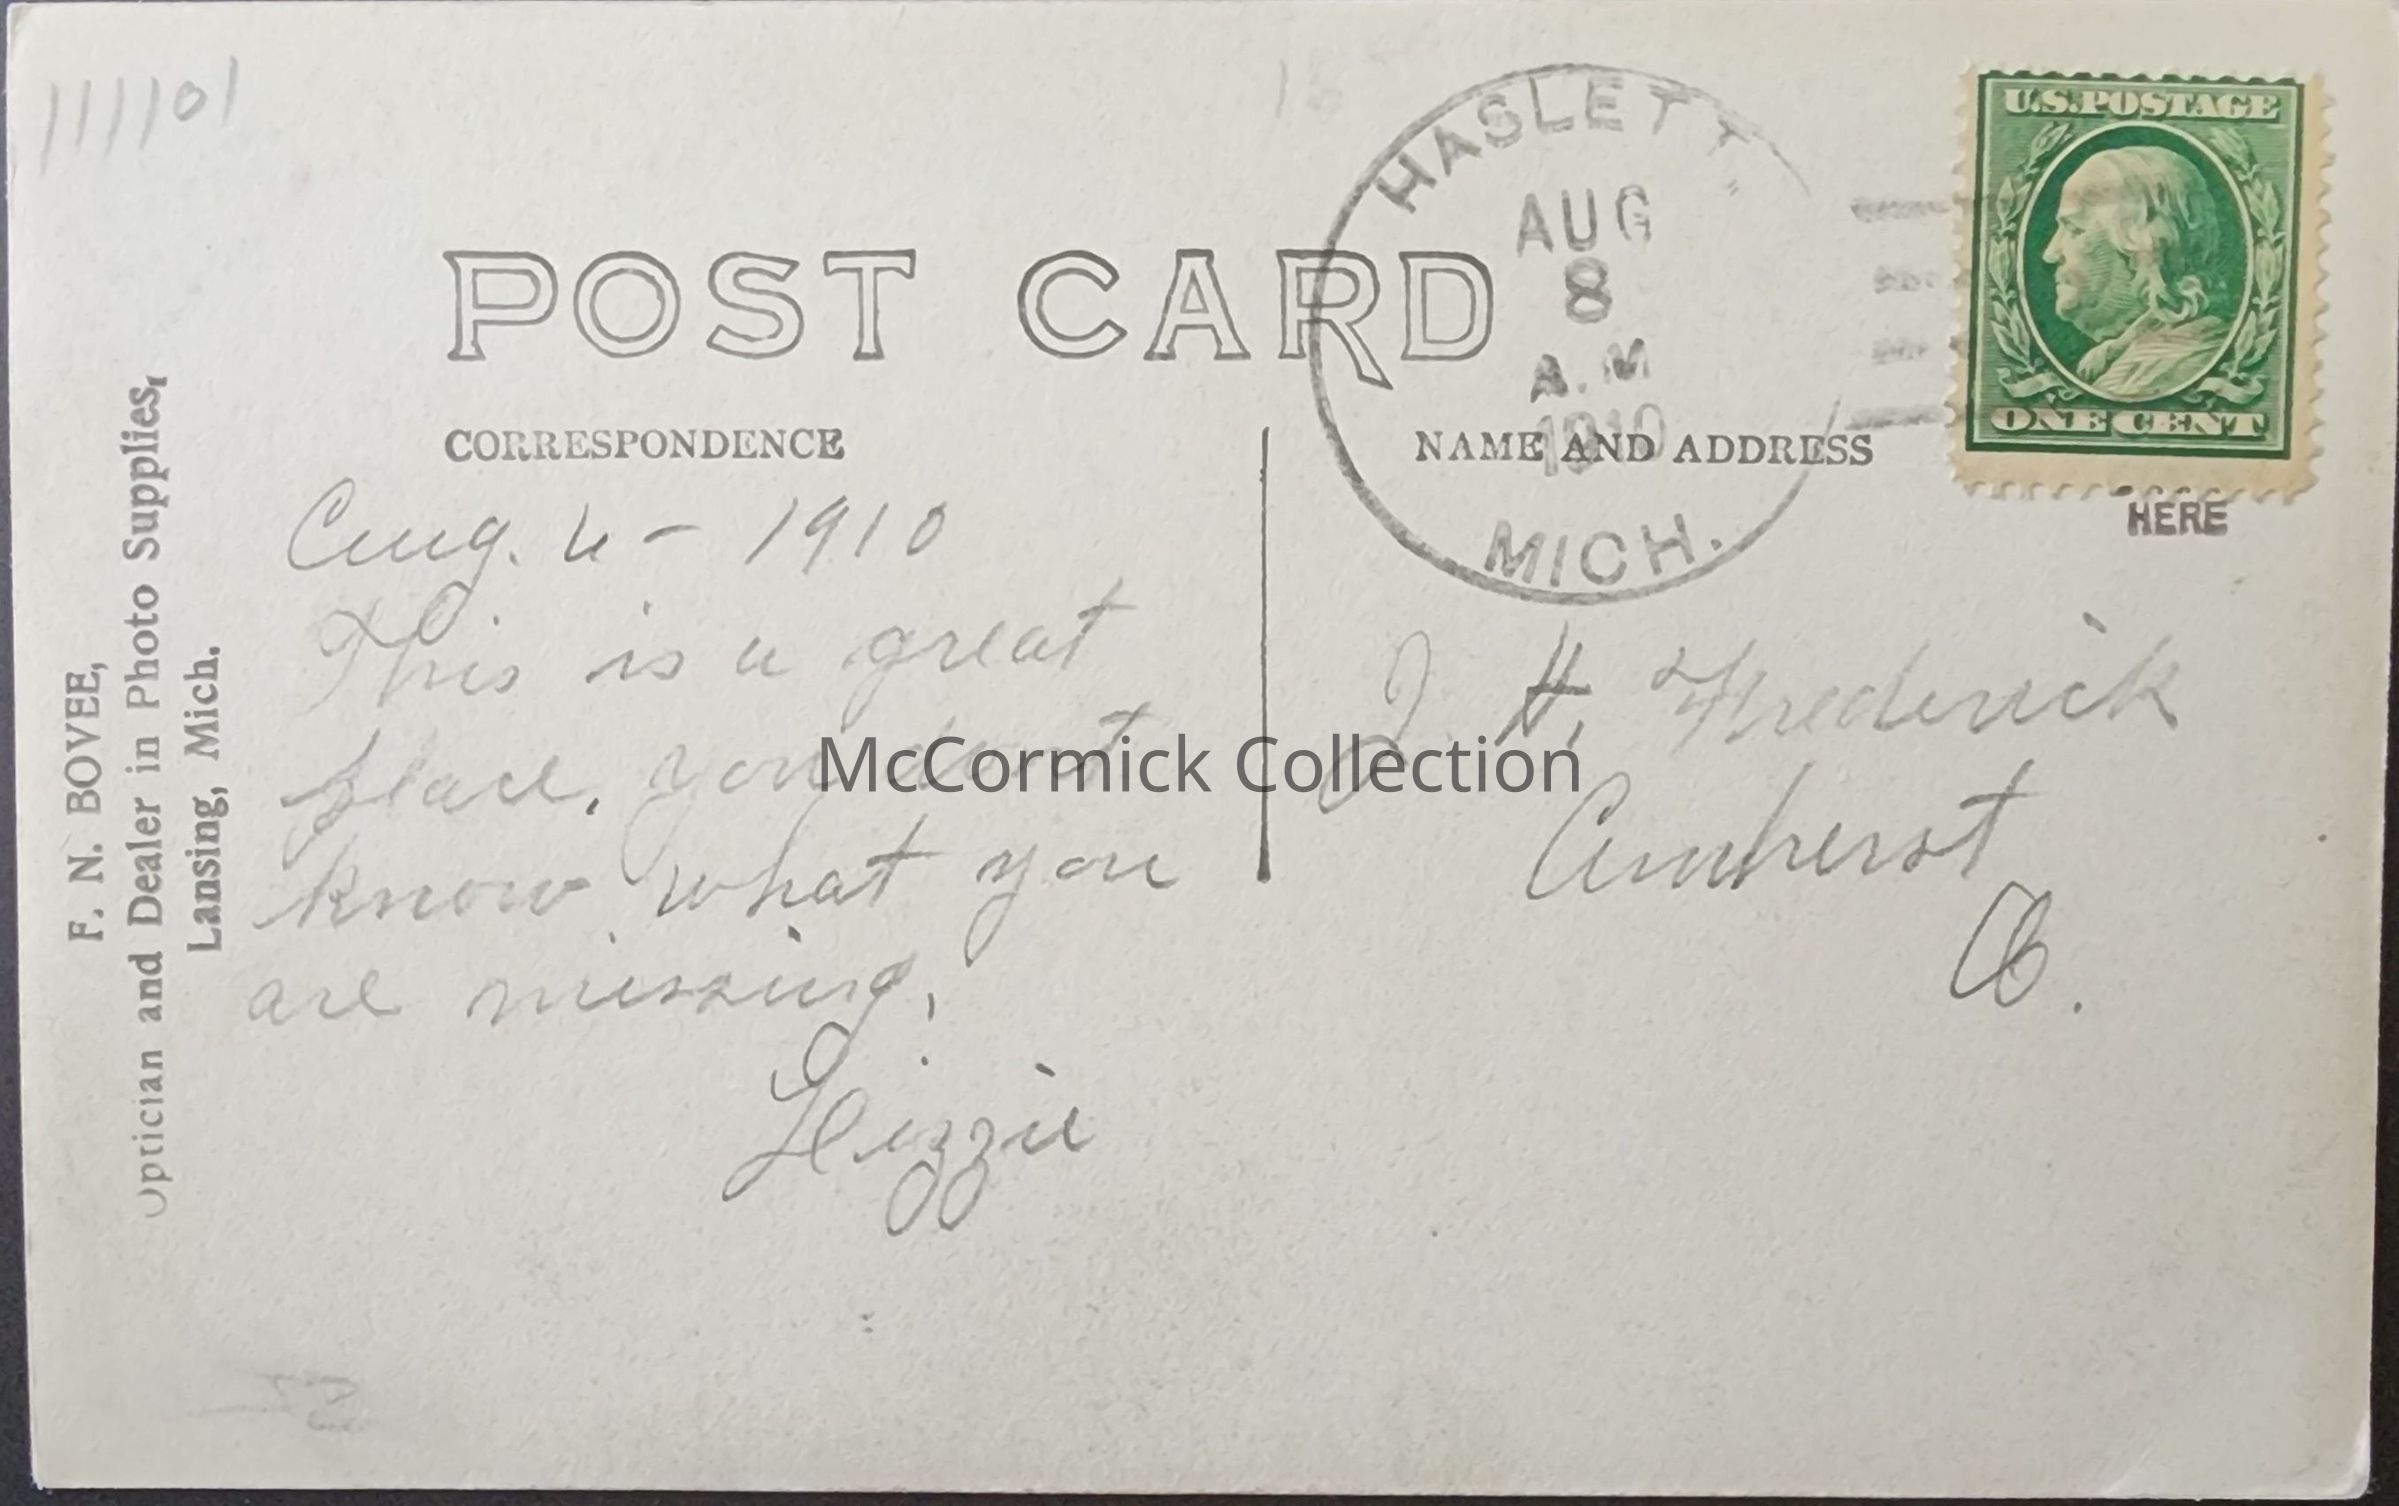 111101
HASLETT
AUG
8
A.M
1910
MICH.
U.S. POSTAGE
ONE CENT
HERE
POST CARD
CORRESPONDENCE
NAME AND ADDRESS
F. N. BOVEE,
Optician and Dealer in Photo Supplies,
Lansing, Mich.
Aug. 6 - 1910
This is a great
place. you dont
know what you
are missing.
Lizzie
J. H. Frederick
Amherst
O.
McCormick Collection